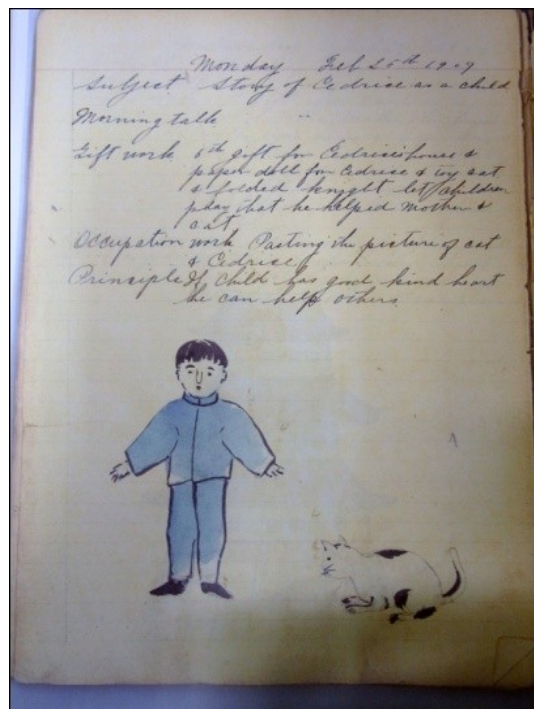 Monday Feb 25th 1909
Subject Story of Cedrice as a child
Morning talk "
Gift work 6th gift for Cedrice's house &
paper doll for Cedrice & toy cat
& folded knight let children
play that he helped Mother &
cat
Occupation work Pasting the picture of cat
& Cedrice
Principle If child has good kind heart
he can help others